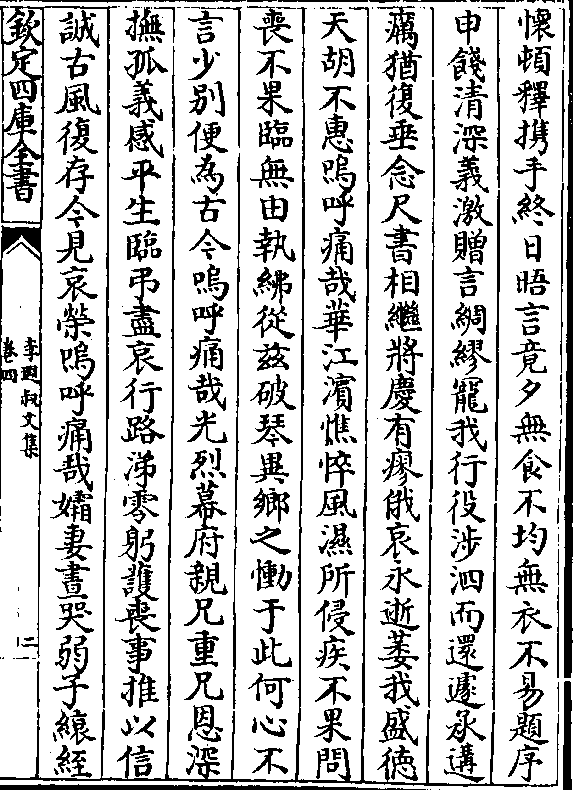 懷頓釋携手終日晤言竟夕無食不均無衣不易題序
申餞清深義激贈言綢繆寵我行役涉泗而還遽承遘
癘猶復垂念尺書相繼將慶有瘳俄哀永逝萎我盛徳
天胡不惠嗚呼痛哉華江濵憔悴風濕所侵疾不果問
喪不果臨無由執紼從兹破琴異鄉之慟于此何心不
言少别便為古今嗚呼痛哉光烈幕府親兄重兄恩深
撫孤義感平生臨弔盡哀行路涕零躬護喪事推以信
誠古風復存今見哀榮嗚呼痛哉孀妻晝哭弱子縗絰
欽定四庫全書
李遐叔文集
卷四
二